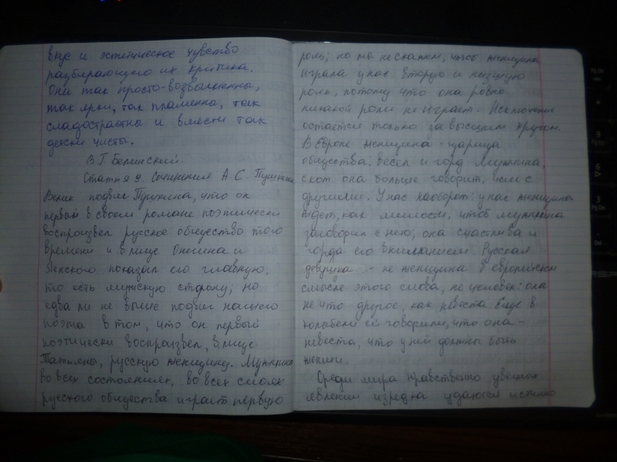 вце и эстетическое чувство
разбирающего их критика.
Они так просто-возвышенны,
так ярки, так пламенны, так
сладострастны и вместе так
детски чисты.
В.Г Белинский.
Статья 9 Сочинения А. С. Пушкина
Велик подвиг Пушкина, что он
первый в своем романе поэтически
воспроизвел русское общество того
времени и в лице Онегина и
Ленского показал его главную,
то есть мужскую сторону; но
едва ли не выше подвиг нашего
поэта в том, что он первый
поэтически воспроизвел, в лице
Татьяны, русскую женщину. Мужчина
во всех состояниях, во всех слоях
русского общества играет первую
роль; но мы не скажем, чтоб женщина
играла у нас вторую и низшую
роль, потому что она ровно
никакой роли не играет. Исключение
остается только за высшим кругом
В Европе женщина - царица
общества: весел и горд мужчина,
с кот она больше говорит, чем с
другими. У нас наоборот: у нас женщина
ждет, как милости, чтоб мужчина
заговорил с нею; она счастлива и
горда его вниманием Русская
девушка - не женщина в европейском
смысле этого слова, не человек: она
не что другое, как невеста Еще в
колыбели ей говорили, что она -
невеста, что у ней должны быть
женихи.
Среди мира нравственно увечных
явлений изредка удаются истинно